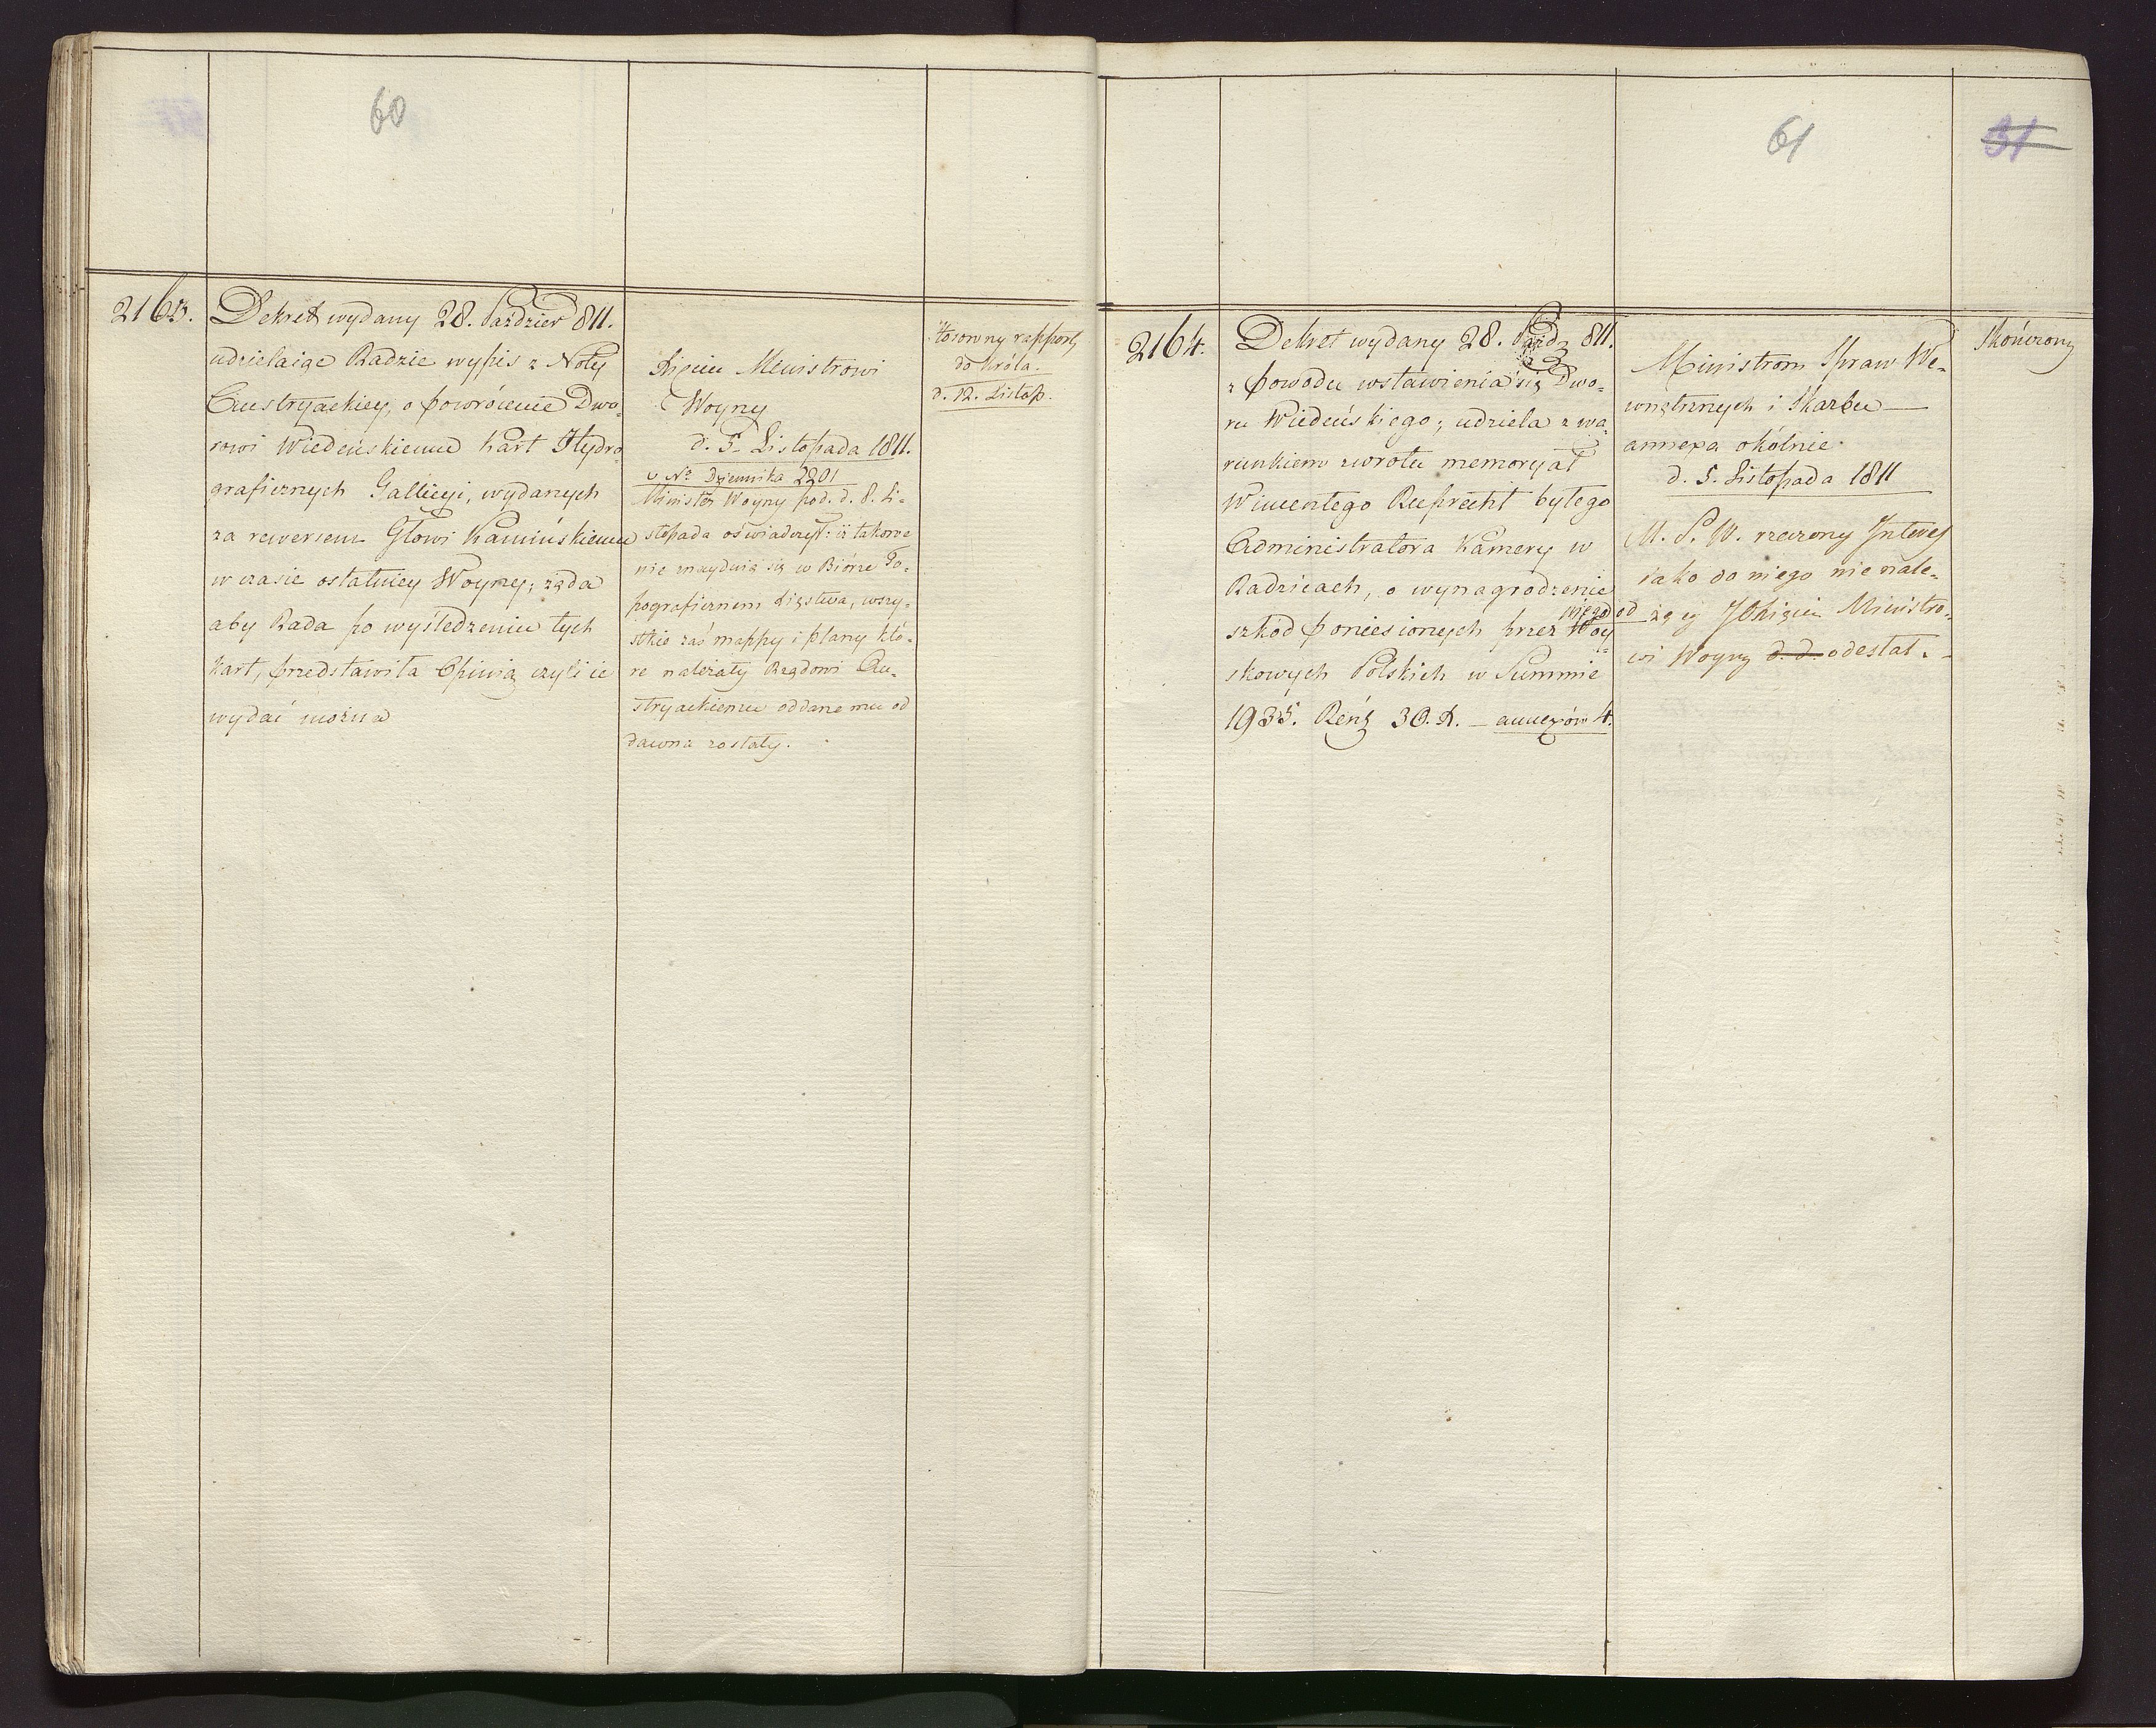 60
2163.
Dekret wydany 28. Paździer 811.
udzielaiąc Radzie wypis z Noty
Austryackiey, o powrócenie Dwo-
rowi Wiedeńskiemu Kart Hydro-
graficznych Gallicyi, wydanych
za rewersem Głowi Kamińskiemu
w czasie ostatniey Woyny; żąda
aby Rada po wyśledzeniu tych
kart, przedstawiła Opinią czyli ie
wydać można
Xięciu Ministrowi
Woyny
d. 5. Listopada 1811.
v Nº Dziennika 2201
Minister Woyny pod. d. 8. Li-
stopada oświadczył: iż takowe
nie znayduią się w Biórze To-
pograficznem Xięstwa, wszy-
stkie zaś mappy i plany któ-
re należały Rządowi Au-
stryackiemu oddane mu od
dawna zostały.
Stosowny rapport
do Króla.
d. 12. Listop.
61
31
2164.
Dekret wydany 28. Paźdz 811.
z powodu wstawienia się Dwo-
ru Wiedeńskiego; udziela z wa-
runkiem zwrotu memoryał
Wincentego Ruprecht byłego
Administratora Kamery w
Radzicach, o wynagrodzenie
szkód poniesionych przez niego od Woy-
skowych Polskich w Summie
1935. Reńs 30. X. – annexów 4.
Ministrom Spraw We-
wnętrznych i Skarbu —
annexa okólnie.
d. 5. Listopada 1811
M. S. W. rzeczony Interes
iako do niego nie nale-
żący JO Xięciu Ministro-
wi Woyny d. d. odesłał. –
Skończony